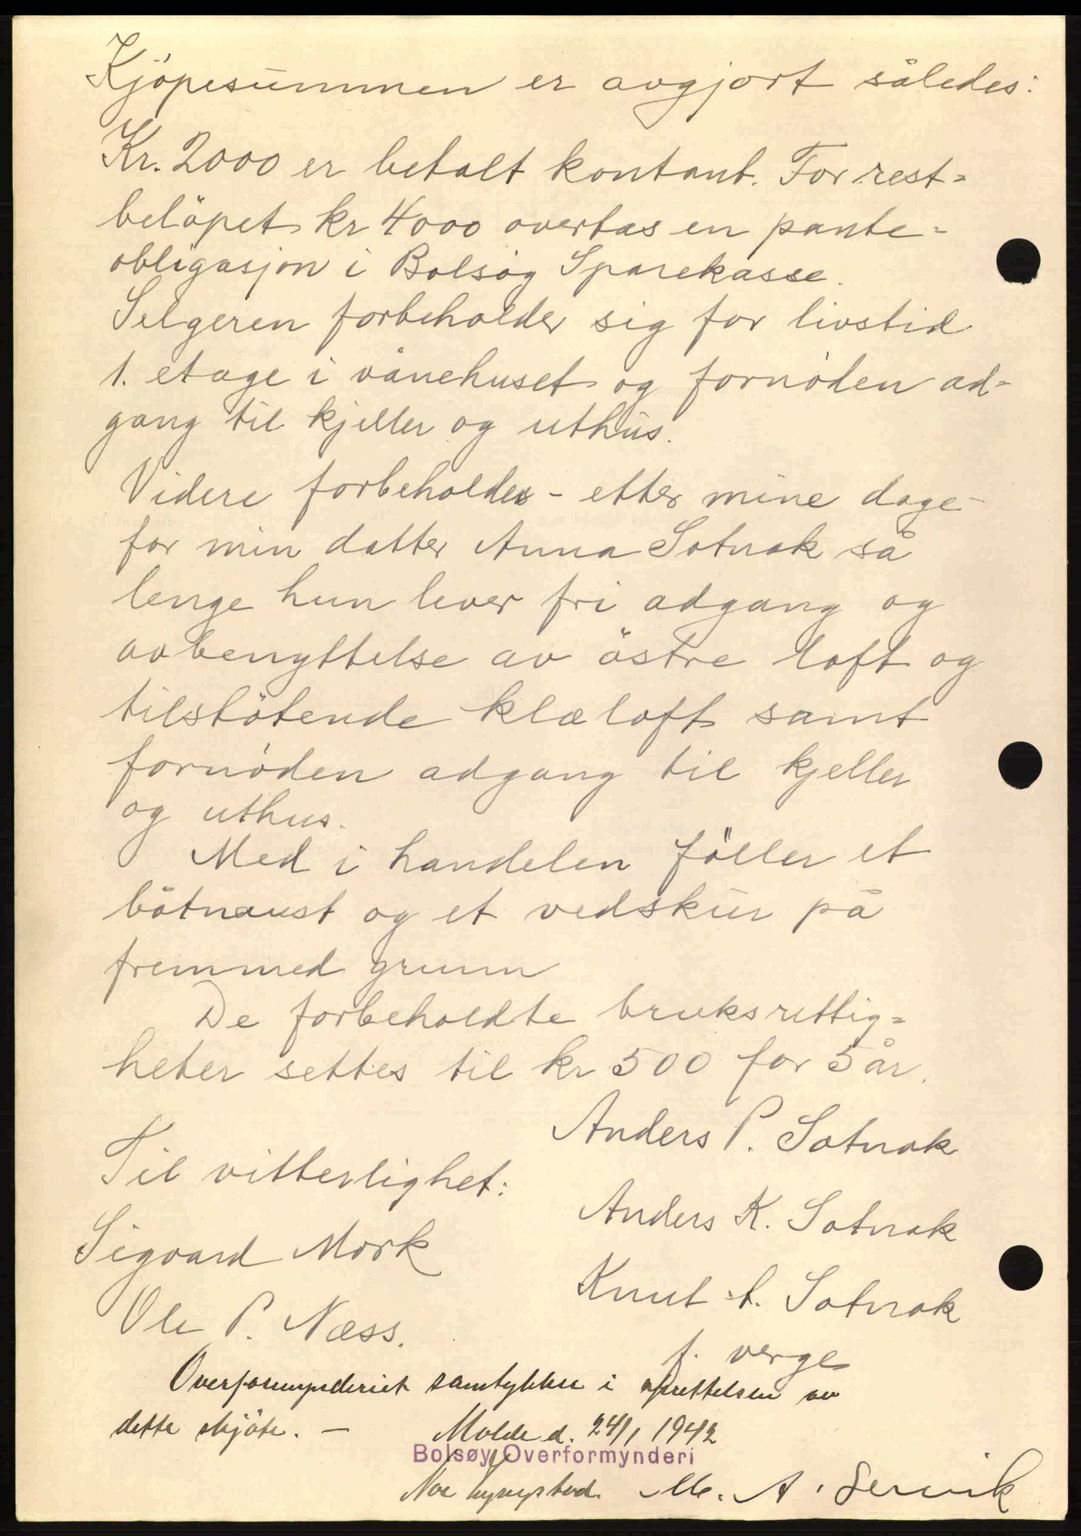 Kjöpesummen er avgjort således:
Kr. 2000 er betalt kontant. For rest=
belöpet kr 4000 overtas en pante=
obligasjon i Bolsöy Sparekasse.
Selgeren forbeholder sig for livstid
1. etage i vånehuset og fornöden ad=
gang til kjeller og uthus.
Videre forbeholdes - etter mine dage -
for min datter Anna Sotnak så
lenge hun lever fri adgang og
avbenyttelse av östre loft og
tilstötende klæloft samt
fornöden adgang til kjeller
og uthus.
Med i handelen föller et
båtnaust og et vedskur på
fremmed grunn
De forbeholdte bruksrettig=
heter settes til kr 500 for 5 år.
Anders P. Sotnak
Til vitterlighet:
Anders K. Sotnak
Sigvard Mork
Knut A. Sotnak
Ole P. Næss.
f. verge
Overformynderiet samtykker i oprettelsen av
dette skjöte. — Molde d. 24/1 1942
Bolsøy Overformynderi
M. A. Servik